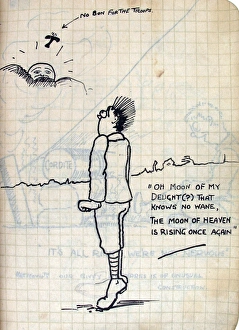 NO BON FOR THE TROOPS.
"OH MOON OF MY
DELIGHT(?) THAT
KNOWS NO WANE,
THE MOON OF HEAVEN
IS RISING ONCE AGAIN"
IT'S ALL